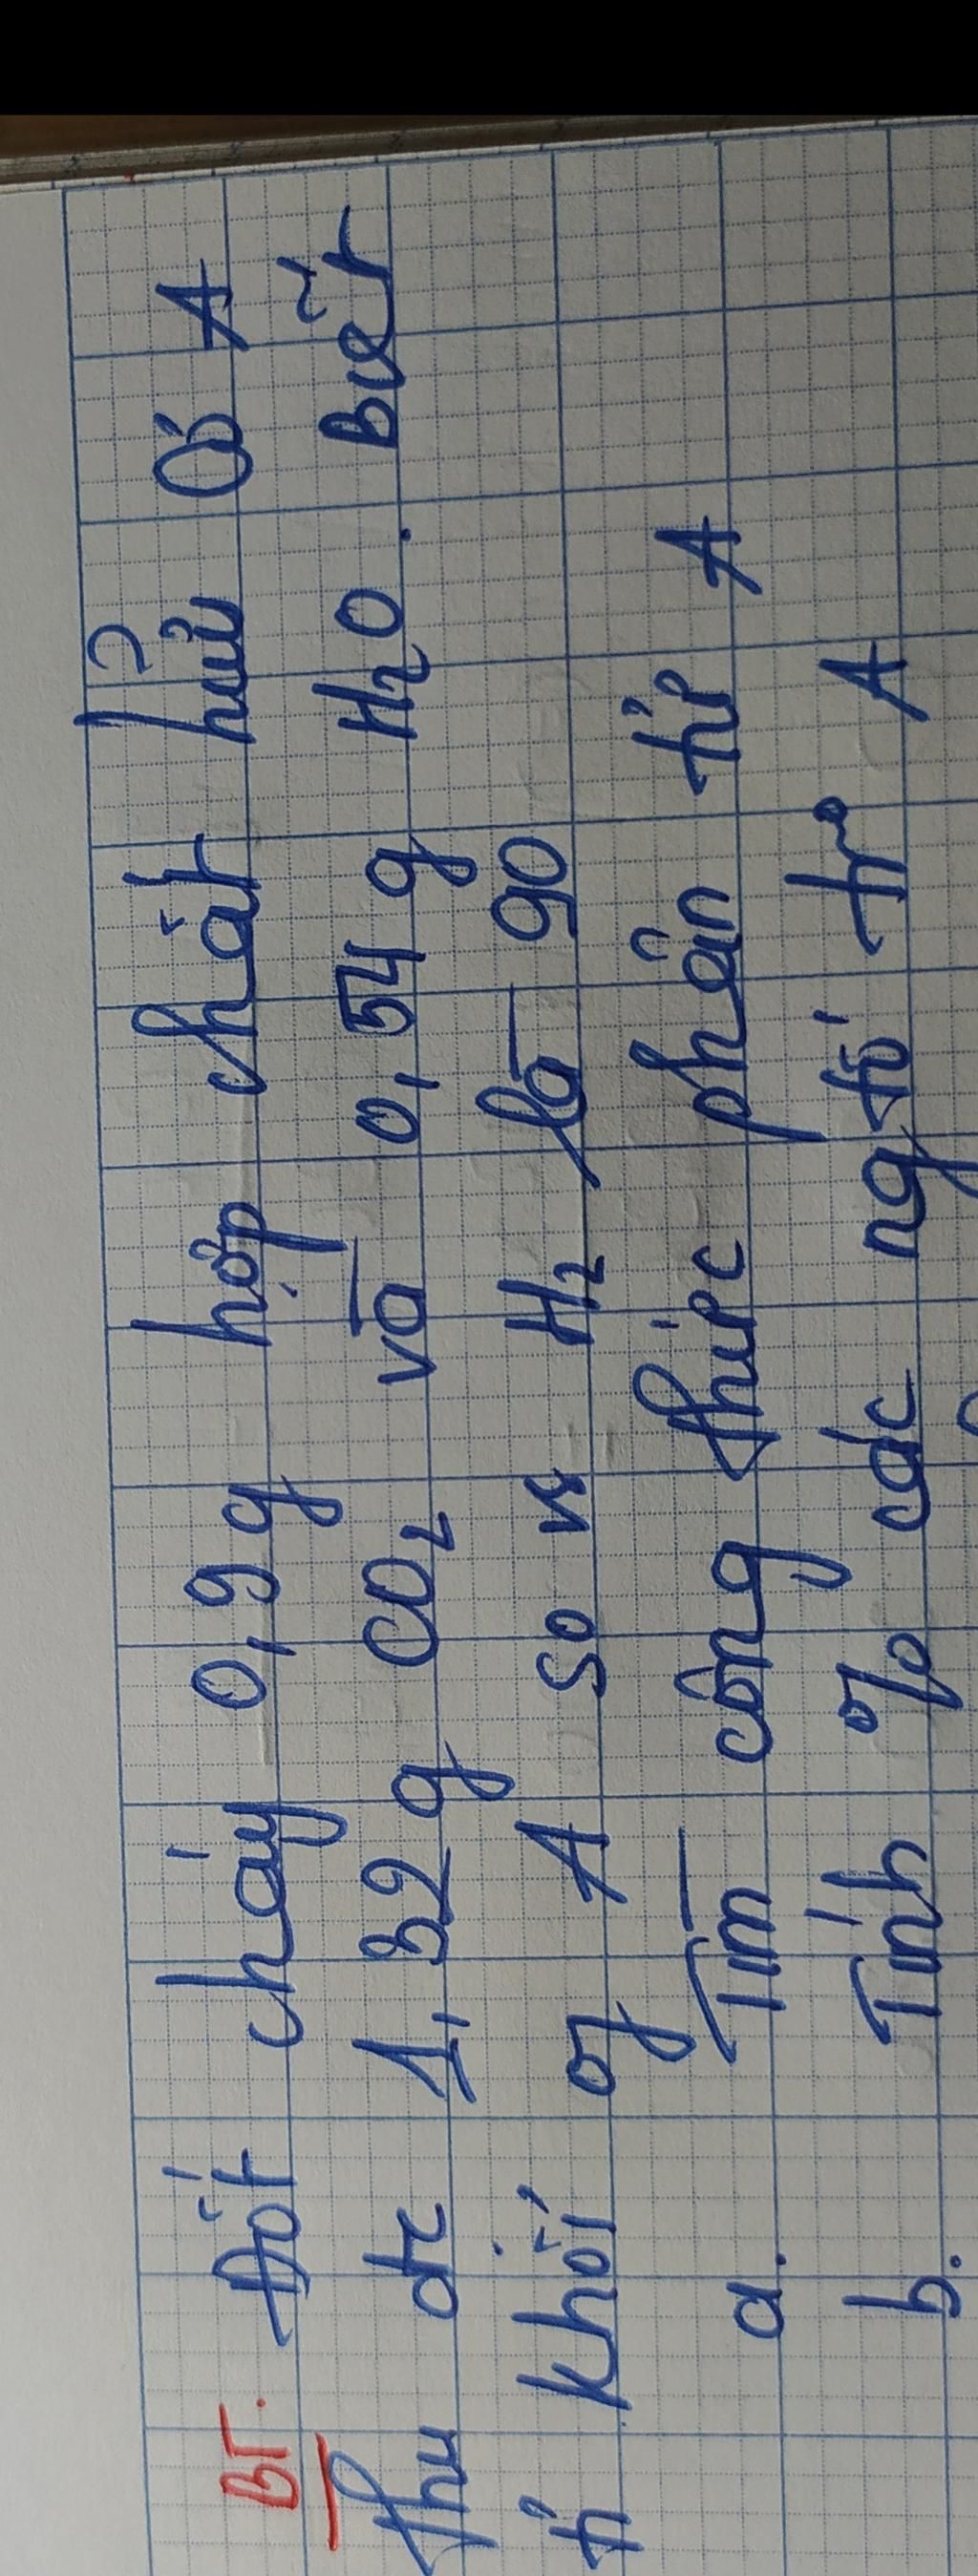 BT. Đốt cháy 0,9 g hợp chất hữu cơ A
thu đc 1,32 g CO2 và 0,54 g H2O. Biết
tỉ khối of A so vs H2 là 90
a. Tìm công thức phân tử A
b. Tính % các ng tố tr A